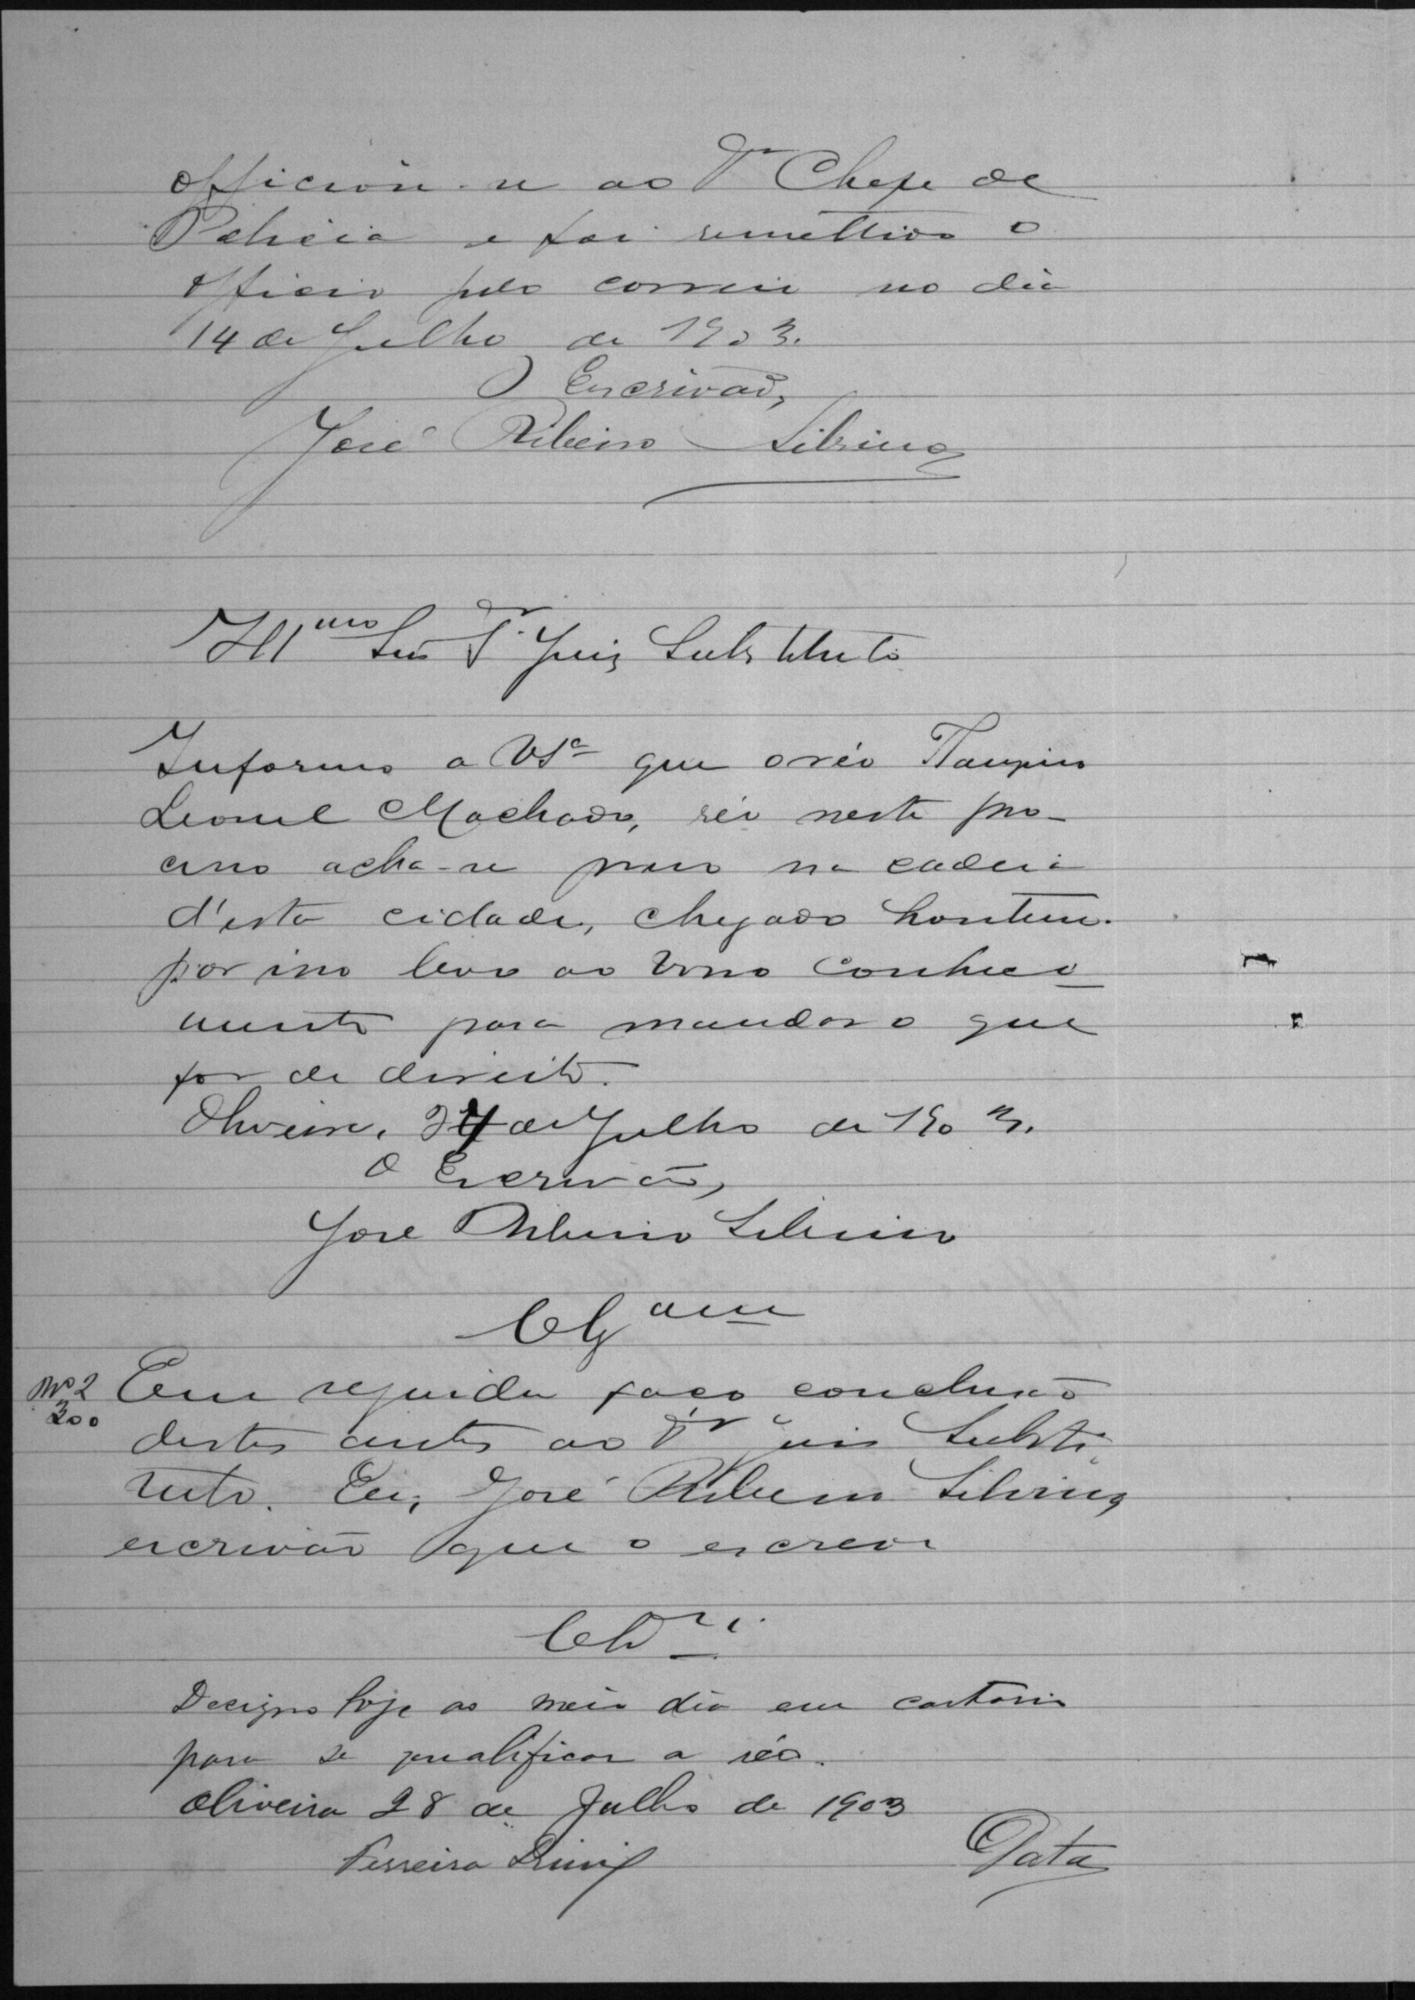 officiou-se ao Dr Chefe de
Policia e foi remettido o
officio pelo correio no dia
14 de Julho de 1903.
O Escrivão,
José Ribeiro Silvino
Illmo Snr Dr Juiz Substituto
Informo a VSª que o réo
Leonel Machado, réo neste pro-
cesso acha-se preso na cadeia
d'esta cidade, chegado hontem.
por isso levo ao Vosso conheci
mento para mandar o que
for de direito.
Oliveira, de Julho de 1903.
O Escrivão,
José Ribeiro Silvino
Clsam
Nº 2 Em seguida faço conclusão
300
destes autos ao Dr Juis Substi
tuto. Eu, José Ribeiro Silvino
escrivão que o escrevi
Clos
Designo hoje ao meio dia em cartorio
para se qualificar o réo.
Oliveira 28 de Julho de 1903
Ferreira
Data